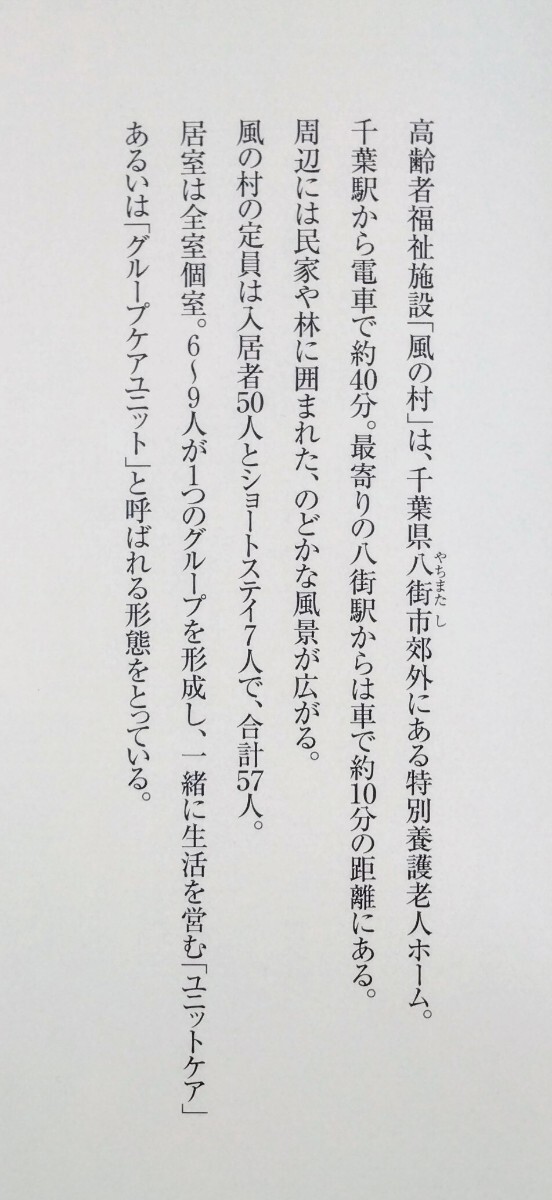 高齢者福祉施設「風の村」は、千葉県八街市郊外にある特別養護老人ホーム。
やちまた し
千葉駅から電車で約40分。最寄りの八街駅からは車で約10分の距離にある。
周辺には民家や林に囲まれた、のどかな風景が広がる。
風の村の定員は入居者50人とショートステイ7人で、合計57人。
居室は全室個室。6〜9人が1つのグループを形成し、一緒に生活を営む「ユニットケア」
あるいは「グループケアユニット」と呼ばれる形態をとっている。